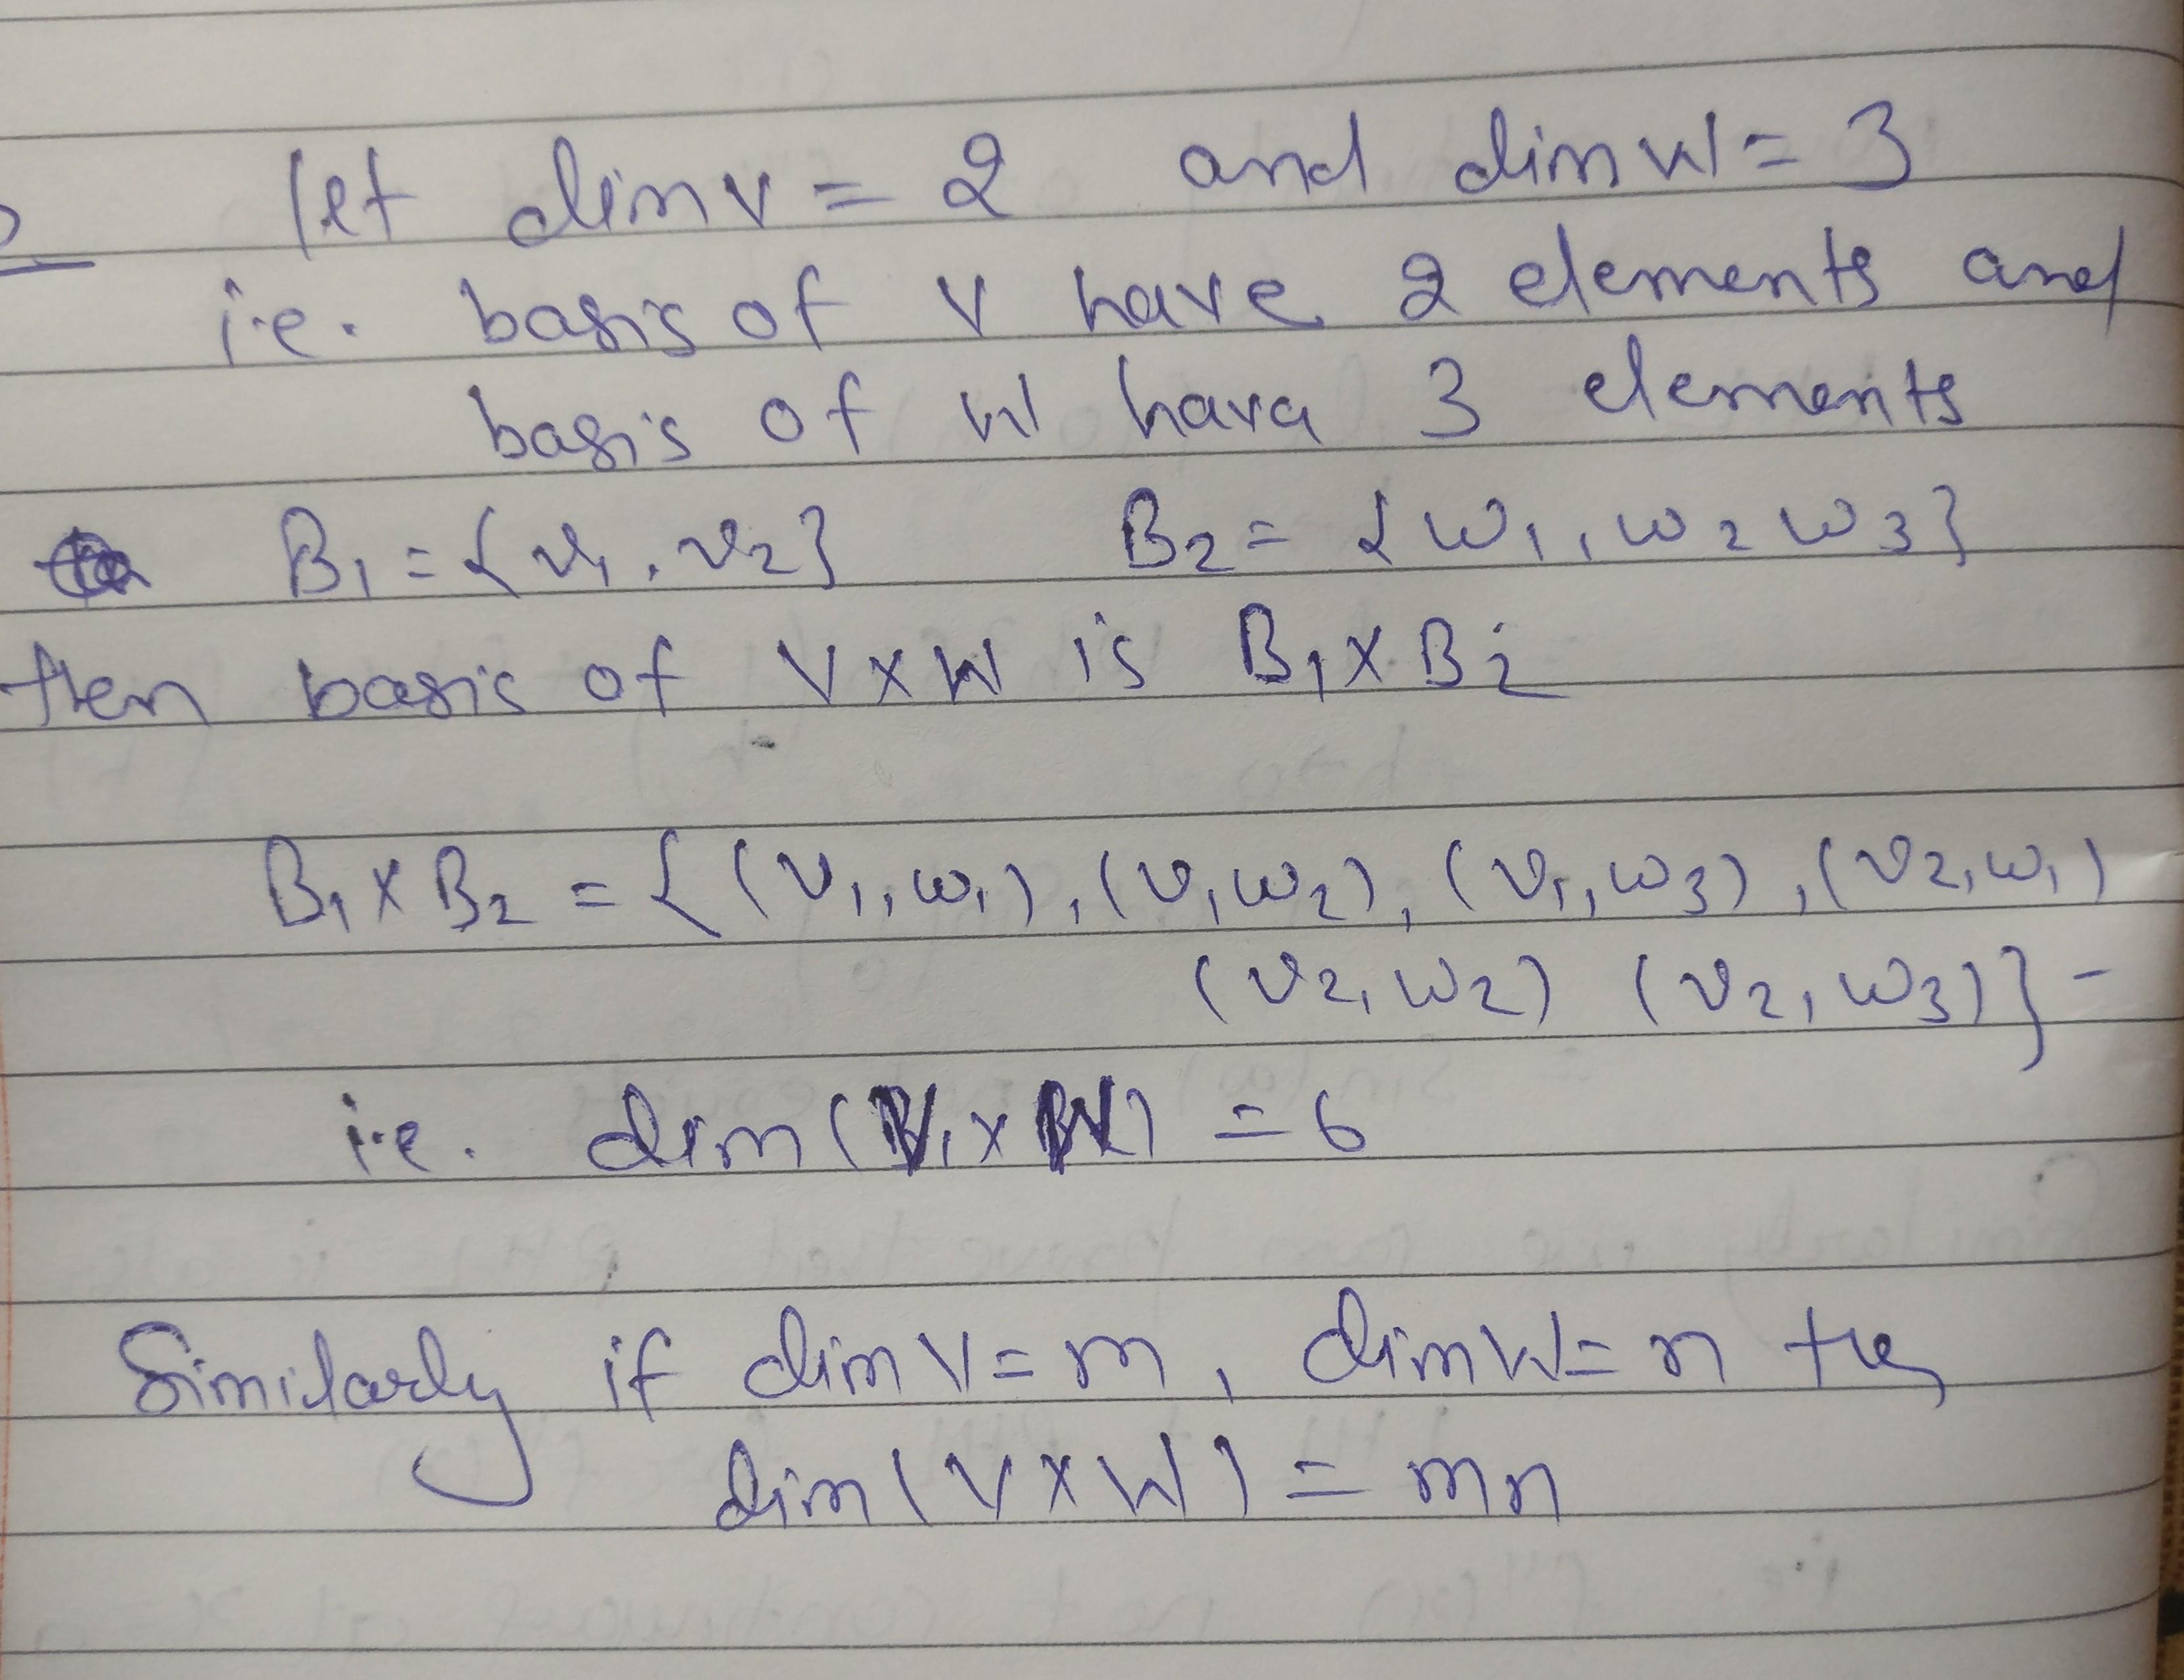 let dim V = 2 and dim W = 3
i.e. basis of V have 2 elements and
basis of W hava 3 elements
B1 = {v1, v2} B2 = {w1, w2 w3}
then basis of V × W is B1 × B2
B1 × B2 = {(v1, w1), (v1 w2), (v1, w3), (v2, w1)
(v2, w2) (v2, w3)} -
i.e. dim (V × W) = 6
Similarly if dim V = m, dim W = n
dim (V × W) = mn